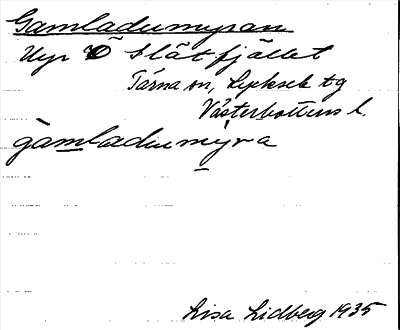 Gamladumyran
Myr Ö Slätfjället
Tärna sn, Lycksele tg
Västerbottens l.
gàmladumýra
Lisa Lidberg 1935